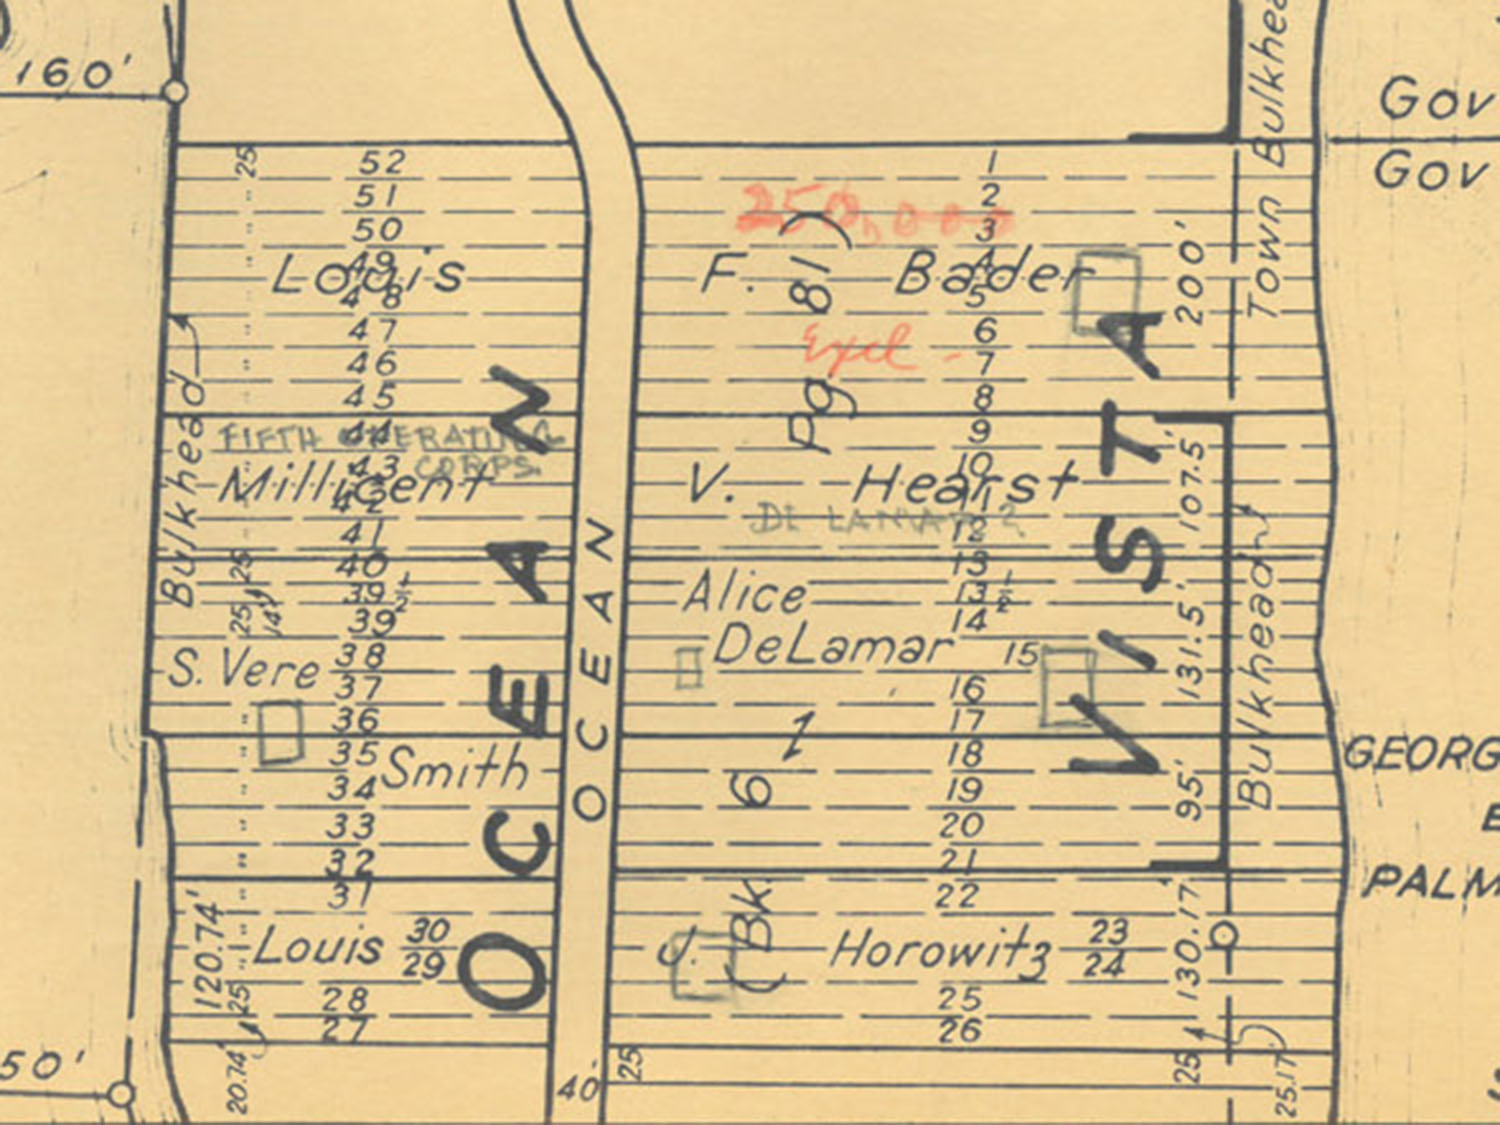 160'
Gov
Gov
Town Bulkhea
25
52
51
50
49
48
47
46
45
44
43
42
41
40
39 1/2
39
38
37
36
35
34
33
32
31
30
29
28
27
1
2
3
4
5
6
7
8
9
10
11
12
13
13 1/2
14
15
16
17
18
19
20
21
22
23
24
25
26
250,000
Louis F. Bader
Excl -
200'
FIFTH OPERATING
CORPS.
Millicent V. Hearst
DE LAMAR ?
107.5'
Alice
DeLamar
131.5'
S. Vere
Smith
95'
Louis J. Horowitz
130.17'
120.74'
25
25
14'
25
20.74'
Bulkhead
Bulkhead
OCEAN VISTA
(Bk. 6 Pg 81)
OCEAN
GEORG
PALM
50'
40'
25
25
25.17'